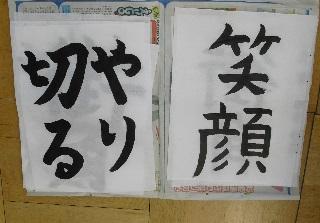 笑
顔
やり
切る